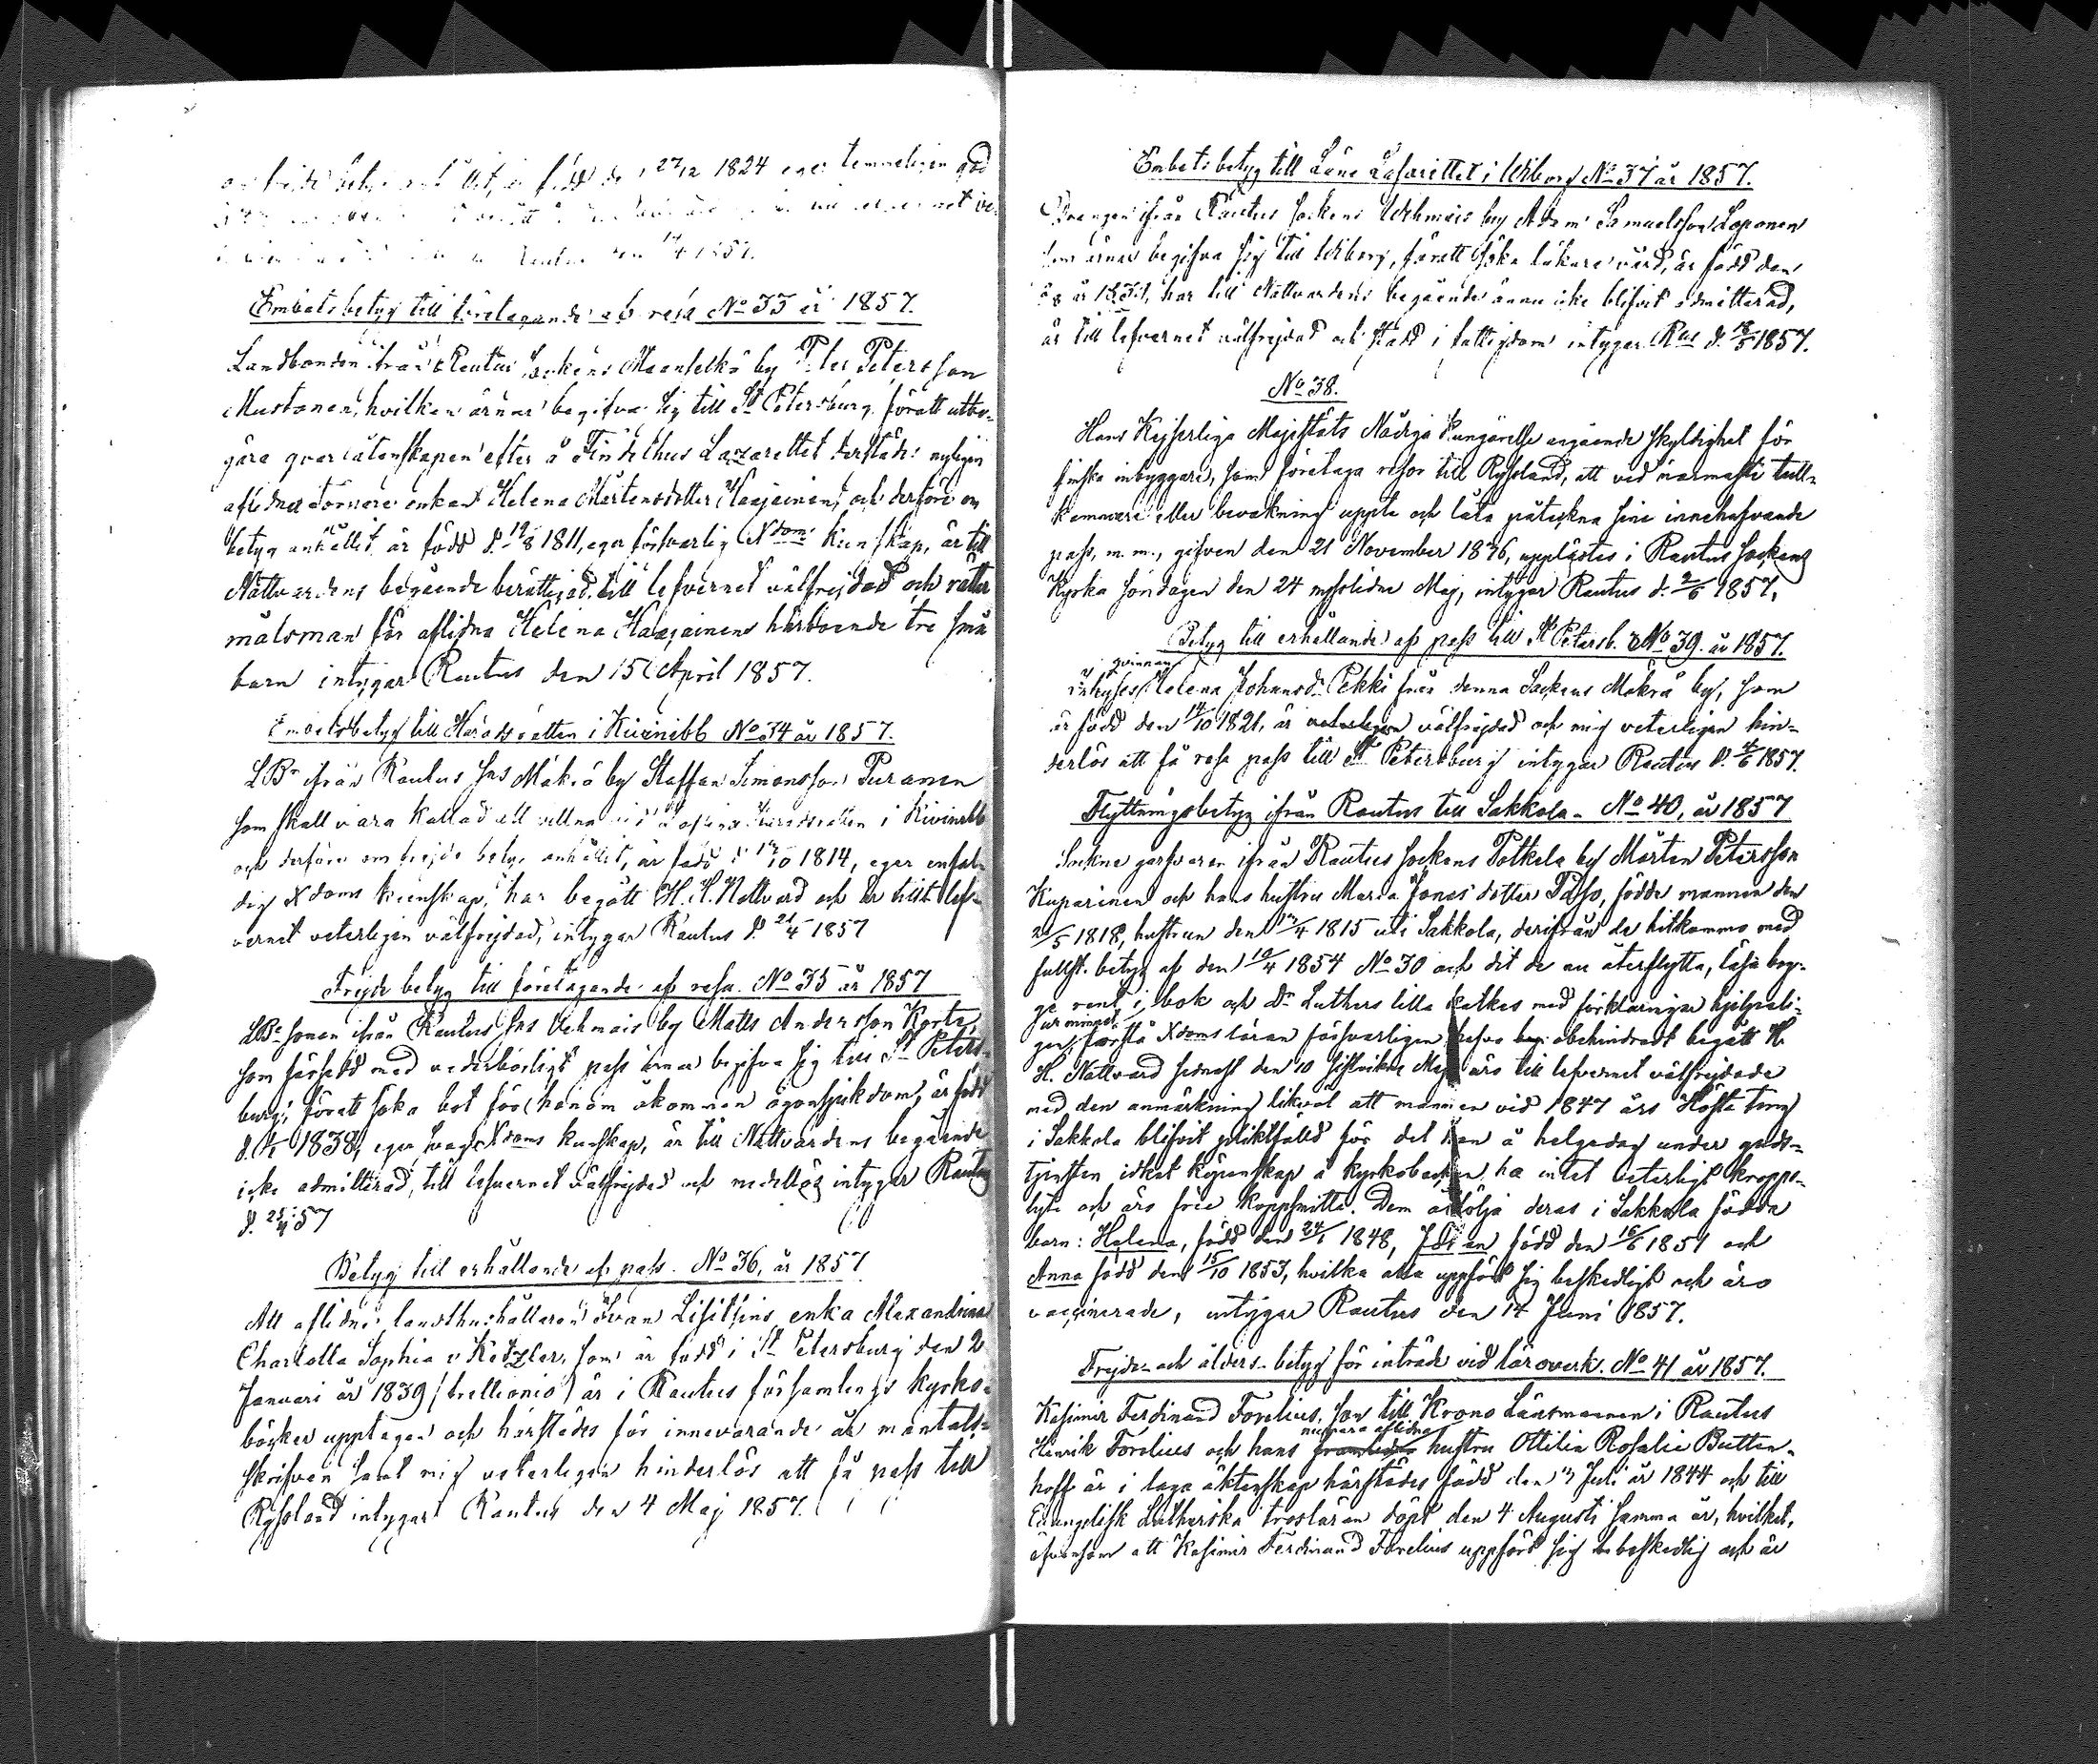 född den 27/12 1824 eger temmeligen god
1857.
Embetsbetyg till företagande af resa No 33 år 1857.
Landbonden från Rautus Sockens Maanselkä by Peter Petersson
Mustonen, hvilken ärnar begifva sig till St Petersburg, föratt utbe-
gära qvarlåtenskapen efter å Findelhus Lazarettet derstädes nyligen
aflidna Torpare enkan Helena Mårtensdotter Haajainen, och derföre om
betyg anhållit, är född d. 19/8 1811, eger försvarlig Xdoms kunskap, är till
Nattvardens begående berättigad, till lefvernet välfrejdad och rätter
målsman för aflidna Helena Haajainens härboende tre små
barn intygar Rautus den 15 April 1857.
Embetsbetyg till Häradsrätten i Kivinebb No 34 år 1857.
LBn ifrån Rautus Sns Mäkrä by Staffan Simonsson Puranen
som skall vara kallad till vittne vid Häradsrätten i Kivinebb
och derföre om frejde betyg anhållit, är född d. 10 1814, eger enfal-
dig Xdoms kunskap, har begått H. H. Nattvard och är till lef-
vernet veterligen välfrejdad, intygar Rautus d. 21/4 1857
Frejde betyg till företagande af resa. No 35 år 1857
LBe sonen ifrån Rautus Sns Vehmais by Matts Andersson Korte,
som försedd med vederbörligt pass ärnar begifva sig till St Peters-
burg, föratt söka bot för honom åkommen ögonsjukdom, är född
d. 1838, eger svag Xdoms kunskap, är till Nattvardens begående
icke admitterad, till lefvernet välfrejdad och medellös intygar Rautus
d. 25/4 57
Betyg till erhållande af pass. No 36, år 1857
Att aflidne landthushållaren Ivan Lisitsins enka Alexandrina
Charlotta Sophia v Ketzler, som är född i St Petersburg den 2
Januari år 1839 (trettionio) är i Rautus församlings kyrko-
böcker upptagen och härstädes för innevarande år mantals-
skrifven samt mig veterligen hinderlös att få pass till
Ryssland intygar Rautus den 4 Maj 1857.
Embetsbetyg till Läne Lasarettet i Wiborg No 37 år 1857.
Drengen ifrån Rautus Sockens Wehmais by Adam Samuelsson Loponen
som ärnar begifva sig till Wiborg, föratt söka läkare vård, är född den
har till Nattvardens begående ännu icke blifvit admitterad,
är till lefvernet välfrejdad och stadd i fattigdom intygar Rus d. 18/5 1857.
No 38.
Hans Kejserliga Majestäts Nådiga Kungörelse angående skyldighet för
finska inbyggare, som företaga resor till Ryssland, att vid närmaste tull-
kammare eller bevakning uppte och låta påteckna sine innehafvande
pass, m. m., gifven den 21 November 1876, upplästes i Rautus Sockens
Kyrka söndagen den 24 nysslidne Maj, intygar Rautus d. 2/6 1857.
Betyg till erhållande af pass till St Petersb. No 39. år 1857.
qvinnan
inhyses Helena Johansdr Pekki från denna Sockens Mäkrä by, som
är född den 14/10 1821, är veterligen välfrejdad och mig veterligen hin-
derlös att få resa pass till St Petersburg intygar Rautus d. 4/6 1857.
Flyttningsbetyg ifrån Rautus till Sakkola. No 40, år 1857
Sockne garfvaren ifrån Rautus Sockens Potkela by Mårten Petersson
Kuparinen och hans hustru Maria Jonas dotter Paso, födde mannen den
2/5 1818, hustrun den 1815 uti Sakkola, derifrån de hitkommo med
fullst. betyg af den 10/4 1854 No 30 och dit de nu återflytta, läsa beg-
ge rent i bok och Dr Luthers lilla katkes med förklaringar hjelpeli-
ur minnet
gen, förstå Xdomsläran försvarligen, hafva obehindradt begått H.
H. Nattvard sednast den 10 sistvikne Maj äro till lefvernet välfrejdade
med den anmärkning likväl att mannen vid 1847 års Hösta ting
i Sakkola blifvit pliktfälld för det han å helgedag under guds-
tjensten idkat köpenskap å kyrkobacken, ha intet veterligt kropps-
lyte och äro frie koppsmitta. Dem åtfölja deras i Sakkola födda
barn: Helena, född den 24/1 1848, Johan född den 16/6 1851 och
Anna född den 15/10 1853, hvilka alla uppfört sig beskedligt och äro
vaccinerade, intygar Rautus den 14 Juni 1857.
Frejde- och ålders- betyg för inträde vid läroverk. No 41 år 1857.
Kasimir Ferdinand Forelius, son till Krono Länsmannen i Rautus
numera aflidna
Henrik Forelius och hans framlidna hustru Ottilia Rosalie Butten-
hoff är i laga äktenskap härstädes född den 17 Juli år 1844 och till
Evangelisk Lutherska trosläran döpt den 4 Augusti samma år, hvilket,
äfvensom att Kasimir Ferdinand Forelius uppfört sig beskedlig och är